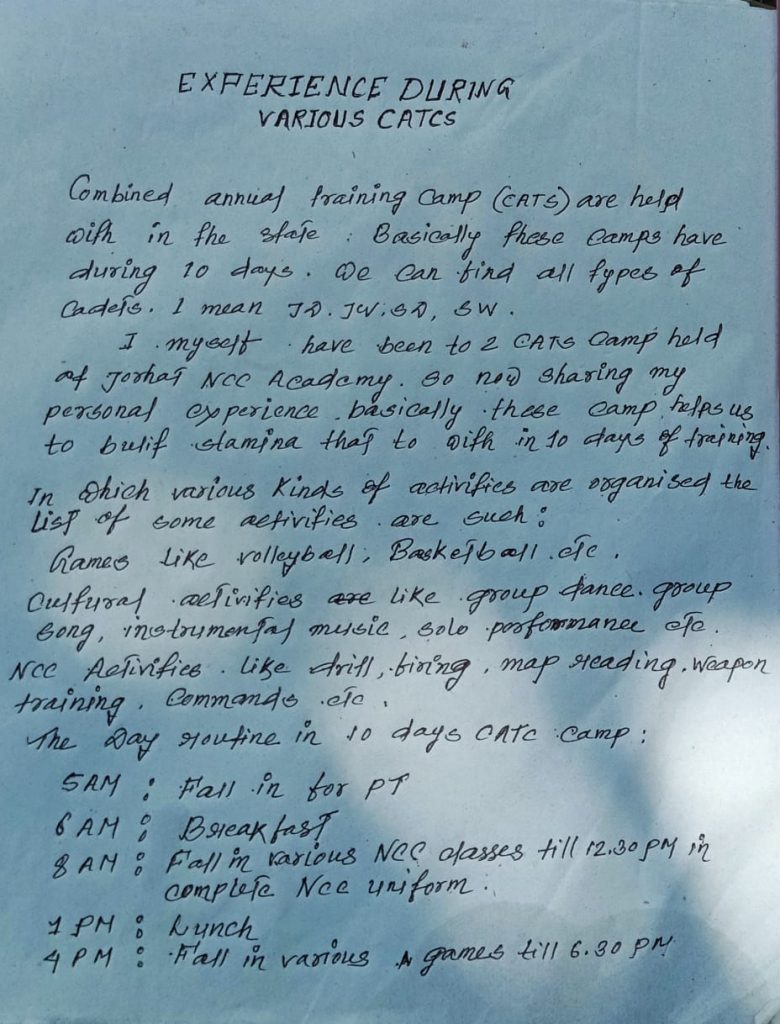 EXPERIENCE DURING
VARIOUS CATCS
Combined annual training Camp (CATS) are held
with in the state : Basically these Camps have
during 10 days. We can find all types of
Cadets. I mean JD. JW, SD, SW.
I myself have been to 2 CATS Camp held
at Jorhat NCC Academy. So now sharing my
personal experience. basically these camp helps us
to bulif stamina that to with in 10 days of training.
In which various kinds of activities are organised the
List of some activities are such :
Games like volleyball, Basketball etc.
Cultural activities are like group dance. group
song, instrumental music, solo porformance etc.
NCC Activities. Like drill, firing, map reading. weapon
training, Commands etc.
The Day routine in 10 days CATC Camp :
5AM : Fall in for PT
6 AM : Breakfast
8 AM : Fall in various NCC classes till 12.30 PM in
complete Ncc uniform.
1 PM : Lunch
4 PM : Fall in various games till 6.30 PM